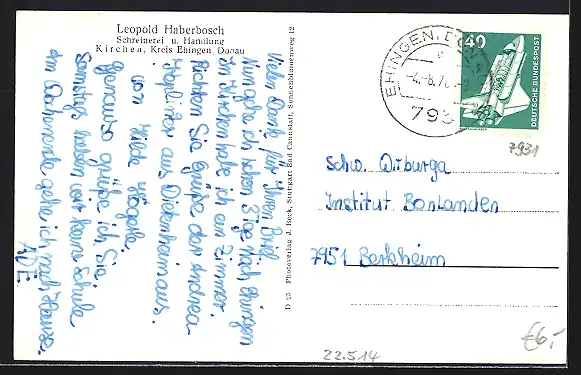 Leopold Haberbosch
Schreinerei u. Handlung
Kirchen, Kreis Ehingen Donau
Vielen Dank für Ihren Brief.
Nun gehe ich schon 3 Tage nach Ehingen
In Kirchen habe ich ein Zimmer.
Richten Sie Grüße der Andrea
Haplitter aus Dietenheim aus.
von Hilde Kögerle.
Genauso grüße ich Sie
Samstags haben wir keine Schule
Am Wochenende gehe ich nach Hause.
D 25 Photoverlag J. Beck, Stuttgart Bad Cannstatt, Sonnenblumenweg 12
EHINGEN,
-4.-8.76
793
40
DEUTSCHE BUNDESPOST
7931
Schw. Witburga
Institut Bonlanden
7951 Berkheim
22.5.14
€6,-